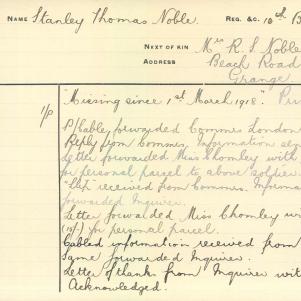 NAME Stanley Thomas Noble. REG. &C. 10th B
NEXT OF KIN Mrs R. S. Noble
ADDRESS Beach Road
Grange
"Missing since 1st March 1918." Pri
1/p
P/Cable forwarded Commrs London
Reply from Commrs. Information
Letter forwarded Miss Chomley with
for personal parcel to above soldier.
received from Commrs. Informa
forwarded Inquirer.
Letter forwarded Miss Chomley wi
(10/-) for personal parcel.
Cabled information received from
Same forwarded Inquirer.
Letter of thanks from Inquirer with
Acknowledged.